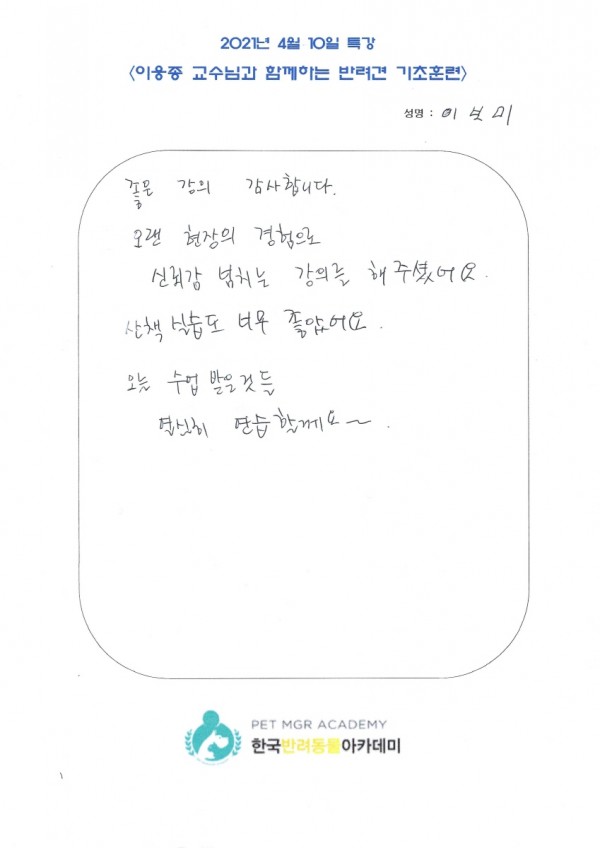 2021년 4월 10일 특강
<이웅종 교수님과 함께하는 반려견 기초훈련>
성명 : 이보미
좋은 강의 감사합니다.
오랜 현장의 경험으로
신뢰감 넘치는 강의를 해주셨어요.
산책 실습도 너무 좋았어요.
오늘 수업 받은것들
열심히 연습할께요~.
PET MGR ACADEMY
한국반려동물아카데미